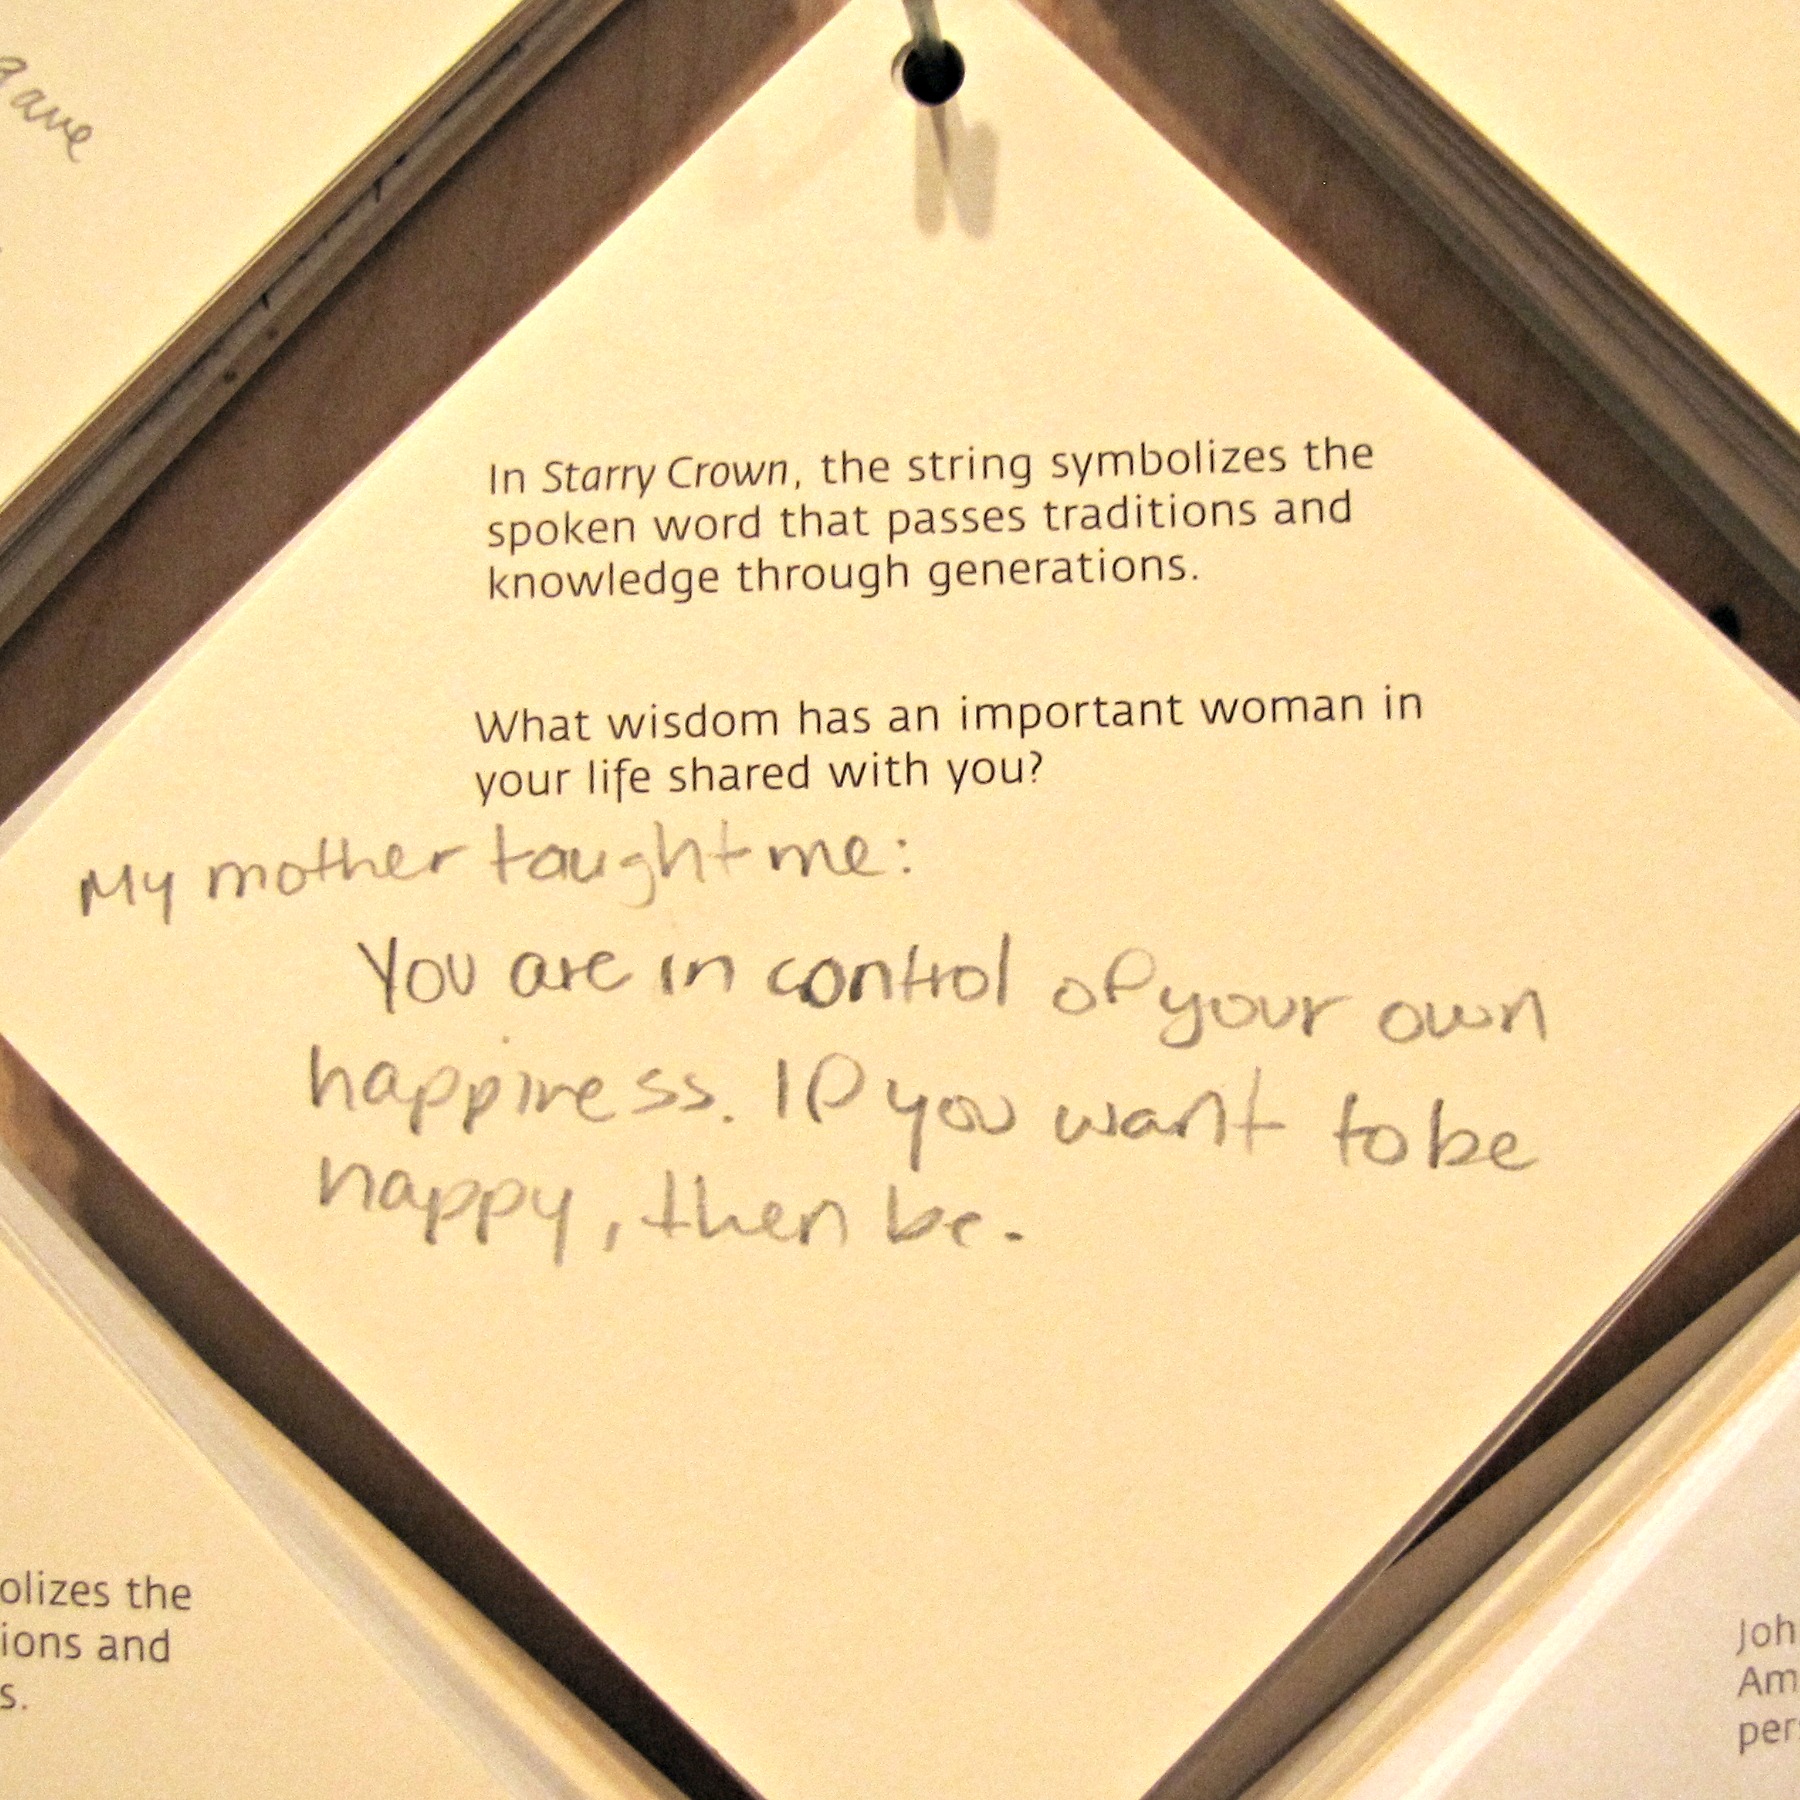 gave
In Starry Crown, the string symbolizes the
spoken word that passes traditions and
knowledge through generations.
What wisdom has an important woman in
your life shared with you?
My mother taught me:
You are in control of your own
happiness. If you want to be
happy, then be.
olizes the
ions and
s.
Joh
Am
pers